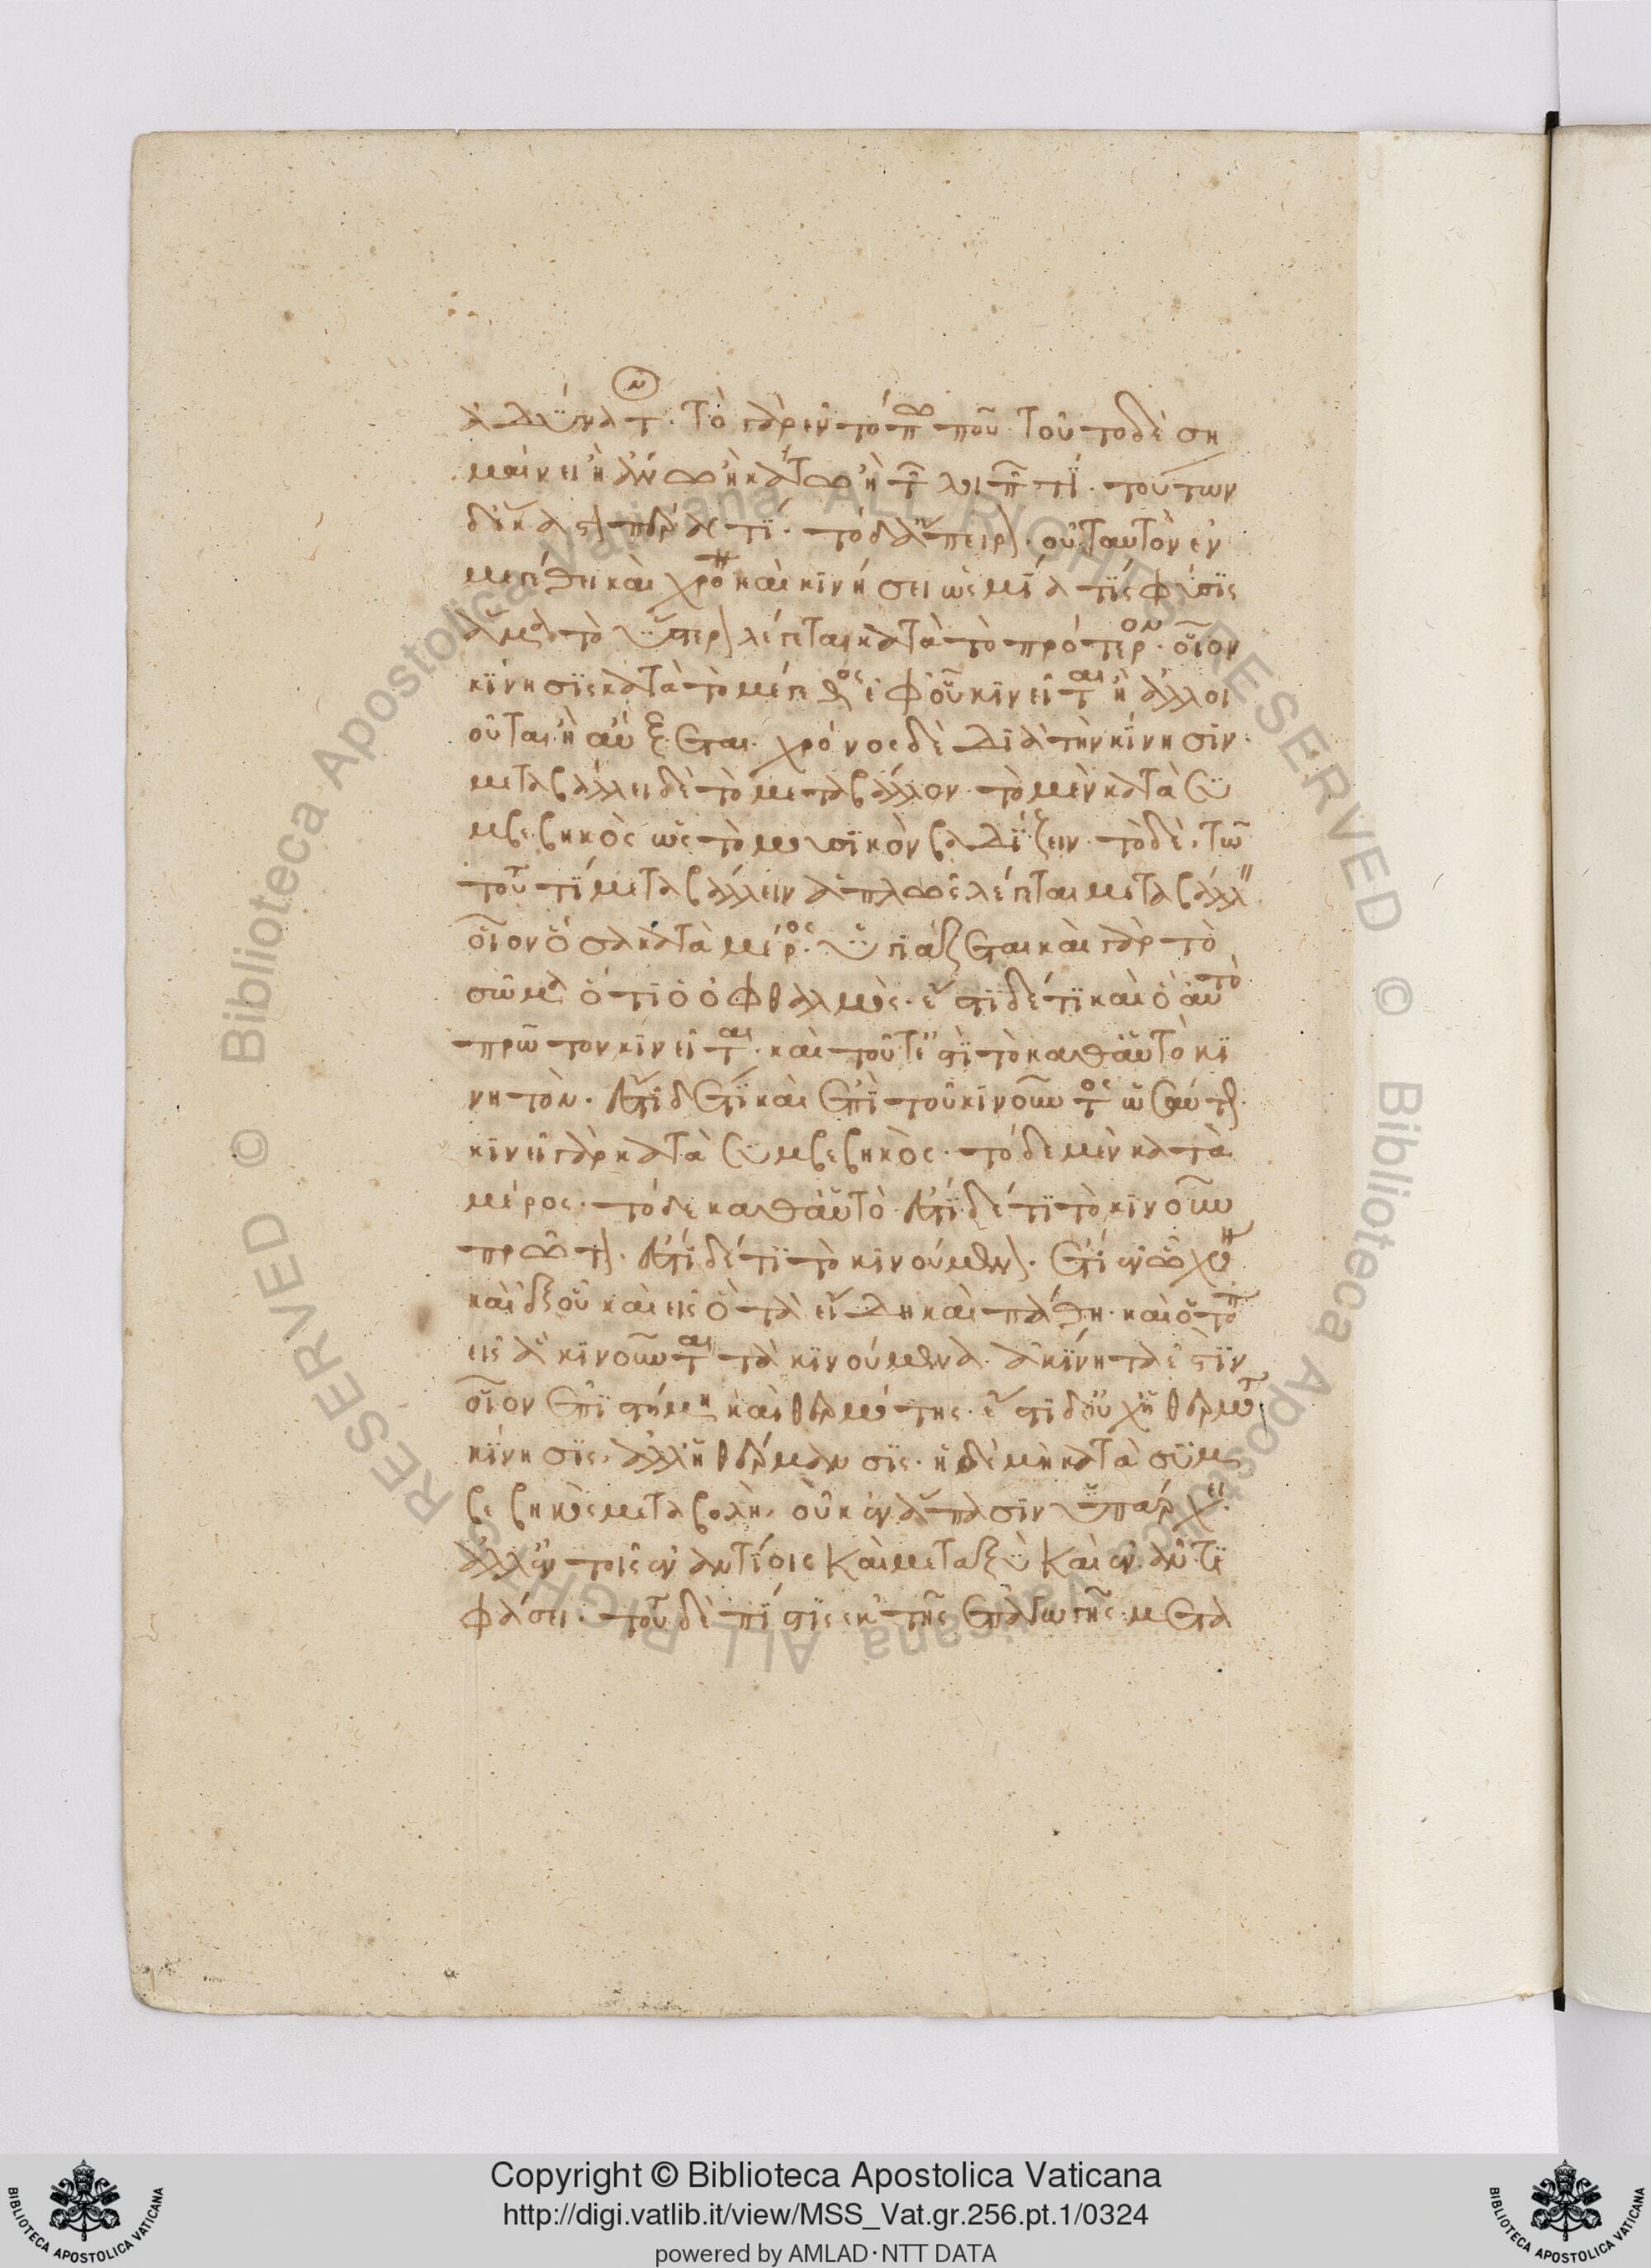 ἀδύνατον. τὸ γὰρ ἐν τόπω ποῦ τοῦτο δὲ ση
μαίνει ἢ ἄνω ἢ κάτω ἢ τῶν λοιπῶν τί. τούτων
δ' ἕκαστον πέρας τί. τὸ δ' ἄπειρον. οὐ ταυτὸν ἐν
μεγέθει καὶ χρόνω καὶ κινήσει ὡς μία τὶς φύσις
ἀλλὰ τὸ ὕστερον λέγεται κατὰ τὸ πρότερον. οἷον
κίνησις κατὰ τὸ μέγεθος ἐφ' οὗ κινεῖται ἢ ἀλλοι
οῦται ἢ αὔξεται. χρόνος δὲ διὰ τὴν κίνησιν.
μεταβάλλει δὲ τὸ μεταβάλλον. τὸ μὲν κατὰ συ
μβεβηκὸς ὡς τὸ μουσικὸν βαδίζειν. τὸ δὲ, τῶ
τούτου τί μεταβάλλειν ἁπλῶς λέγεται μεταβάλλειν
οἷον ὅσα κατὰ μέρος. ὑγιάζεται καὶ γὰρ τὸ
σῶμα ὅτι ὁ ὀφθαλμὸς. ἔστι δέ τι καὶ ὃ αὐτὸ
πρῶτον κινεῖται. καὶ τοῦτ' ἔστι τὸ καθ' αὑτὸ κι
νητὸν. ἔστι δ' ἔτι καὶ ἐπὶ τοῦ κινοῦντος ὡσαύτως.
κινεῖ γὰρ κατὰ συμβεβηκὸς. τὸ δε μὲν κατὰ
μέρος. τὸ δε καθ' αὑτὸ. ἔστι δέ τι τὸ κινοῦν
πρῶτον. ἔστι δέ τι τὸ κινούμενον. ἔτι ἐν ᾧ χρόνω
καὶ ἐξ οὗ καὶ εἰς ὃ τὰ εἴδη καὶ πάθη. καὶ ὁ τόπος
εἰς ἃ κινοῦνται τὰ κινούμενα. ἀκίνητα ἐστὶν
οἷον ἐπιστήμη καὶ θερμότης. ἔστι δ' οὐχ ἡ θερμότης
κίνησις, ἀλλ' ἡ θέρμανσις. ἡ δὲ μὴ κατὰ συμ
βεβηκὸς μεταβολὴ, οὐκ ἐν ἅπασιν ὑπάρχει.
ἀλλ' ἐν τοῖς ἐναντίοις καὶ μεταξὺ καὶ ἐν ἀντι
φάσει. τούτου δὲ πίστις ἐκ τῆς ἐπαγωγῆς. μετα